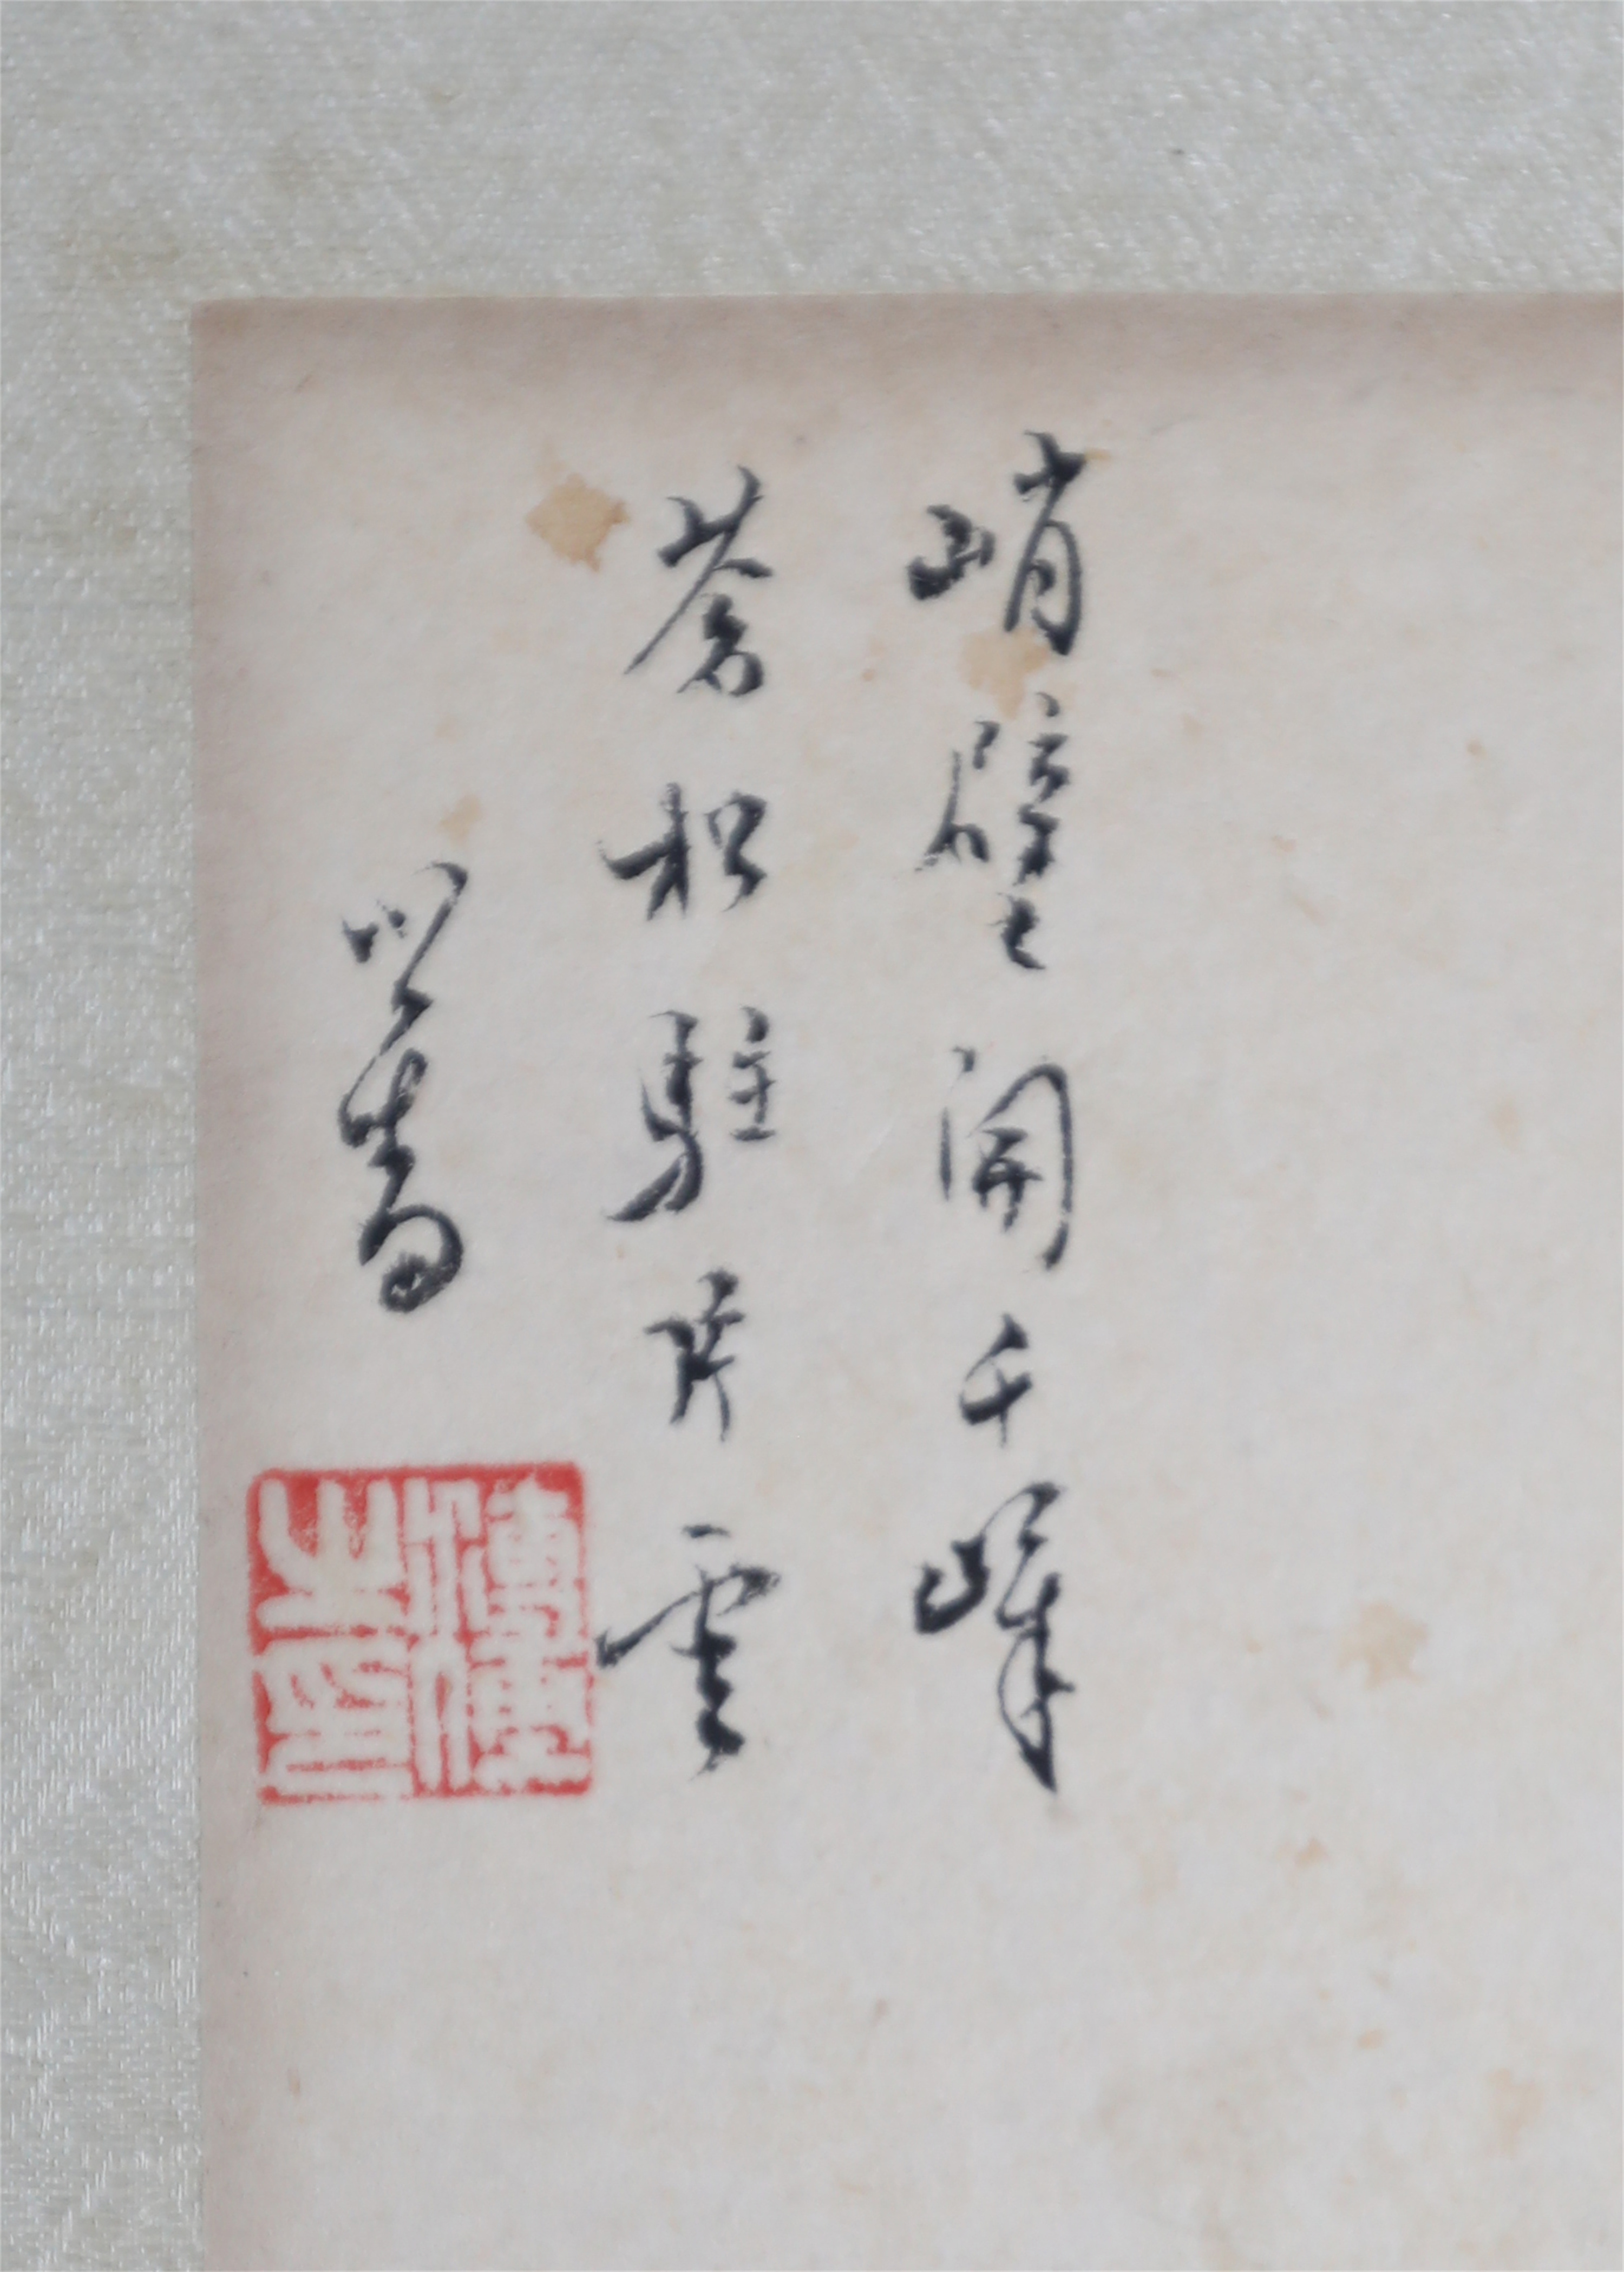 峭壁開千峰
蒼松駐片雲
心畬
溥儒之印